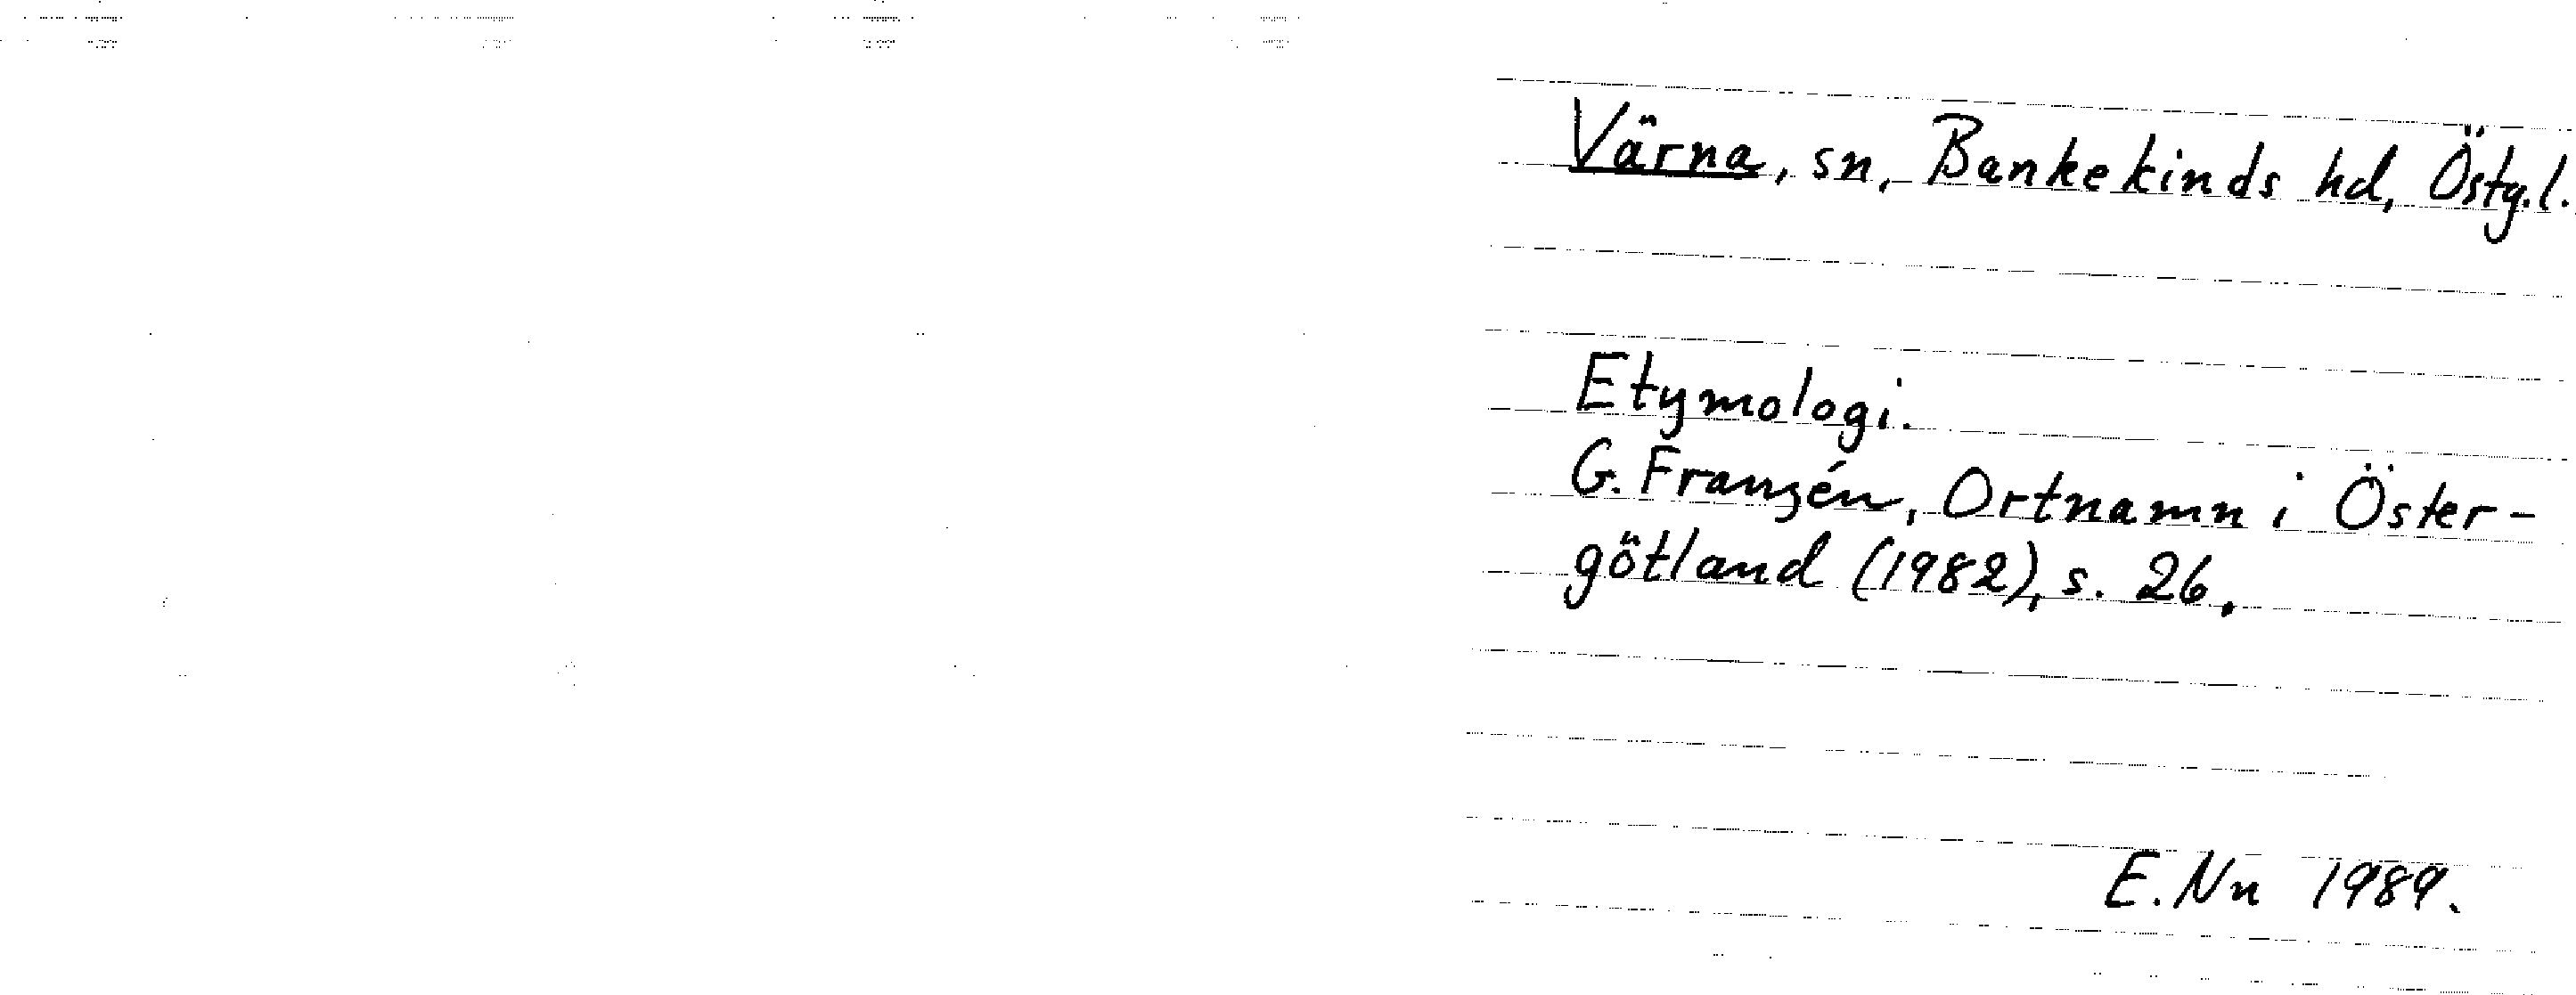 Värna, sn, Bankekinds hd, Östg.l.
Etymologi.
G. Franzén, Ortnamn i Öster-
götland (1982), s. 26.
E. Nn 1989.